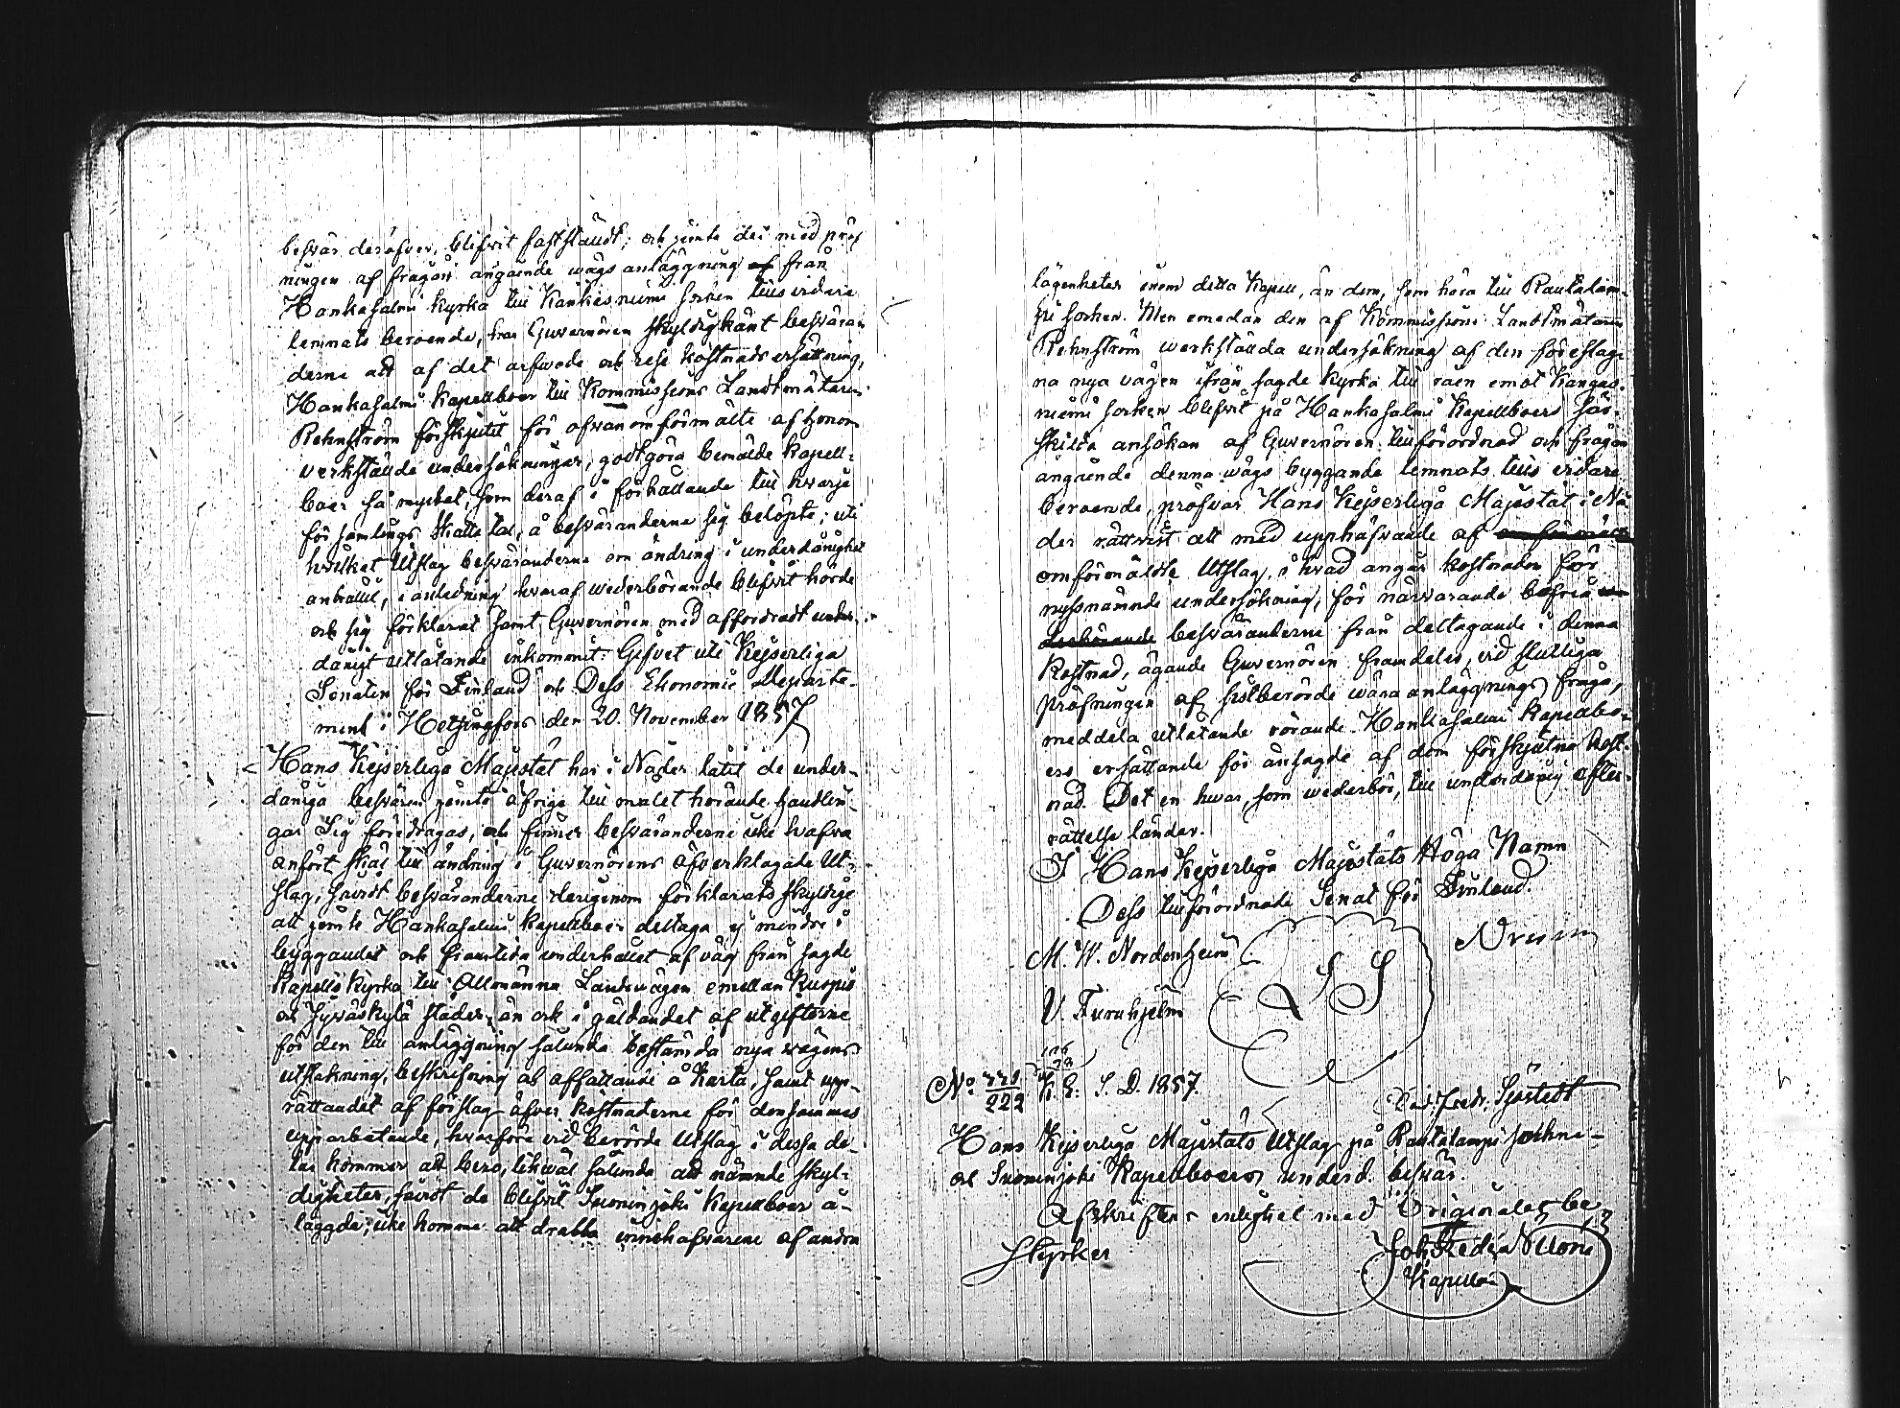 besvär deröfver, blifvit fastständt; och jemte det med pröf
ningen af frågan angående wägs anläggning af från
Hankasalmi kyrka till Kankisniemi socken tills vidare
lemnats beroende, har Guvernören skyldigkänt besväran
derne att af det arfwode och rese kostnads ersättning,
Hankasalmi Kapellboer till Kommissions Landtmätaren
Rehnström förskjutit för ofvanomförmälte af honom
verkställde undersökningar, godtgöra bemälde Kapell-
boer så mycket, som deraf i förhållande till hvarje
församlings skattetal, å besväranderne sig belöpte; uti
hvilket Utslag besväranderne om ändring i underdånighet
anhållit, i anledning hvaraf wederbörande blifvit hörde
och sig förklarat samt Guvernören med affordradt under-
dånigt utlåtande inkommit: Gifvet uti Kejserliga
Senaten för Finland och Dess Ekonomie Departe-
ment i Helsingfors den 20. November 1857
Hans Kejserliga Majestät har i Nåder låtit de under-
dåniga besvären jemte öfrige till målet hörande handlin-
gar Sig föredragas, och finner besväranderne icke hafva
anfört skäl till ändring i Guvernörens öfverklagade Ut-
slag, hvarst besväranderne derigenom förklarats skyldige
att jemte Hankasalmi Kapellboer deltaga ej mindre i
byggandet och framtida underhållet af väg från sagde
Kapells Kyrka till Allmänna Landsvägen emellan Kuopio
och Jyväskylä städer, än ock i gäldandet af utgifterne
för den till anläggning sålunda bestämda nya vägens
utstakning, beskrifning och affattande å Karta, samt upp-
rättandet af förslag öfver kostnaderne för densammas
upparbetande, hvarföre vid berörde Utslag i dessa de-
lar kommer att bero, likväl sålunda att nämnde skyl-
digheter, hvarst de blifvit Suonenjoki Kapellboer å-
laggde, icke komma att drabba innehafvarene af andra
lägenheter inom detta Kapell, än dem, som höra till Rautalam-
pi socken. Men emedan den af Kommissions Landtmätaren
Rehnström werkställda undersökning af den föreslag-
na nya vägen ifrån sagde kyrka till råen emot Kangas-
niemi socken blifvit på Hankasalmi Kapellboers sär-
skilda ansökan af Guvernören tillförordnad och frågan
angående denna wägs byggande lemnats tills vidare
beroende, pröfvar Hans Kejserliga Majestät i Nå-
der rättvist att med upphäfvande af omförmält
omförmälde Utslag, i hvad angår kostnaden för
nyssnämnde undersökning, för närvarande befria we
derbörande besväranderne från deltagande i denna
Kostnad, ägande Guvernören framdeles, vid slutliga
pröfningen af sistberörde wäga anläggnings fråga,
meddela utlåtande rörande Hankasalmi Kapellbo-
ers ersättande för ansagde af dem förskjutna kost-
nad. Det en hvar, som wederbör, till underdånig efter-
rättelse länder.
I Hans Kejserliga Majestäts Höga Namn
Dess tillförordnade Senat för Finland.
M. W. Nordenheim
V. Furuhjelm
L S
No 221/222 K. E. S. D. 1857.
Fredr. Sjöstedt
Hans Kejserliga Majestäts Utslag på Rautalampi sockne-
och Suonenjoki Kapellboers underd. besvär.
Afskriftens enlighet med Originalet be-
styrker
Kapellan